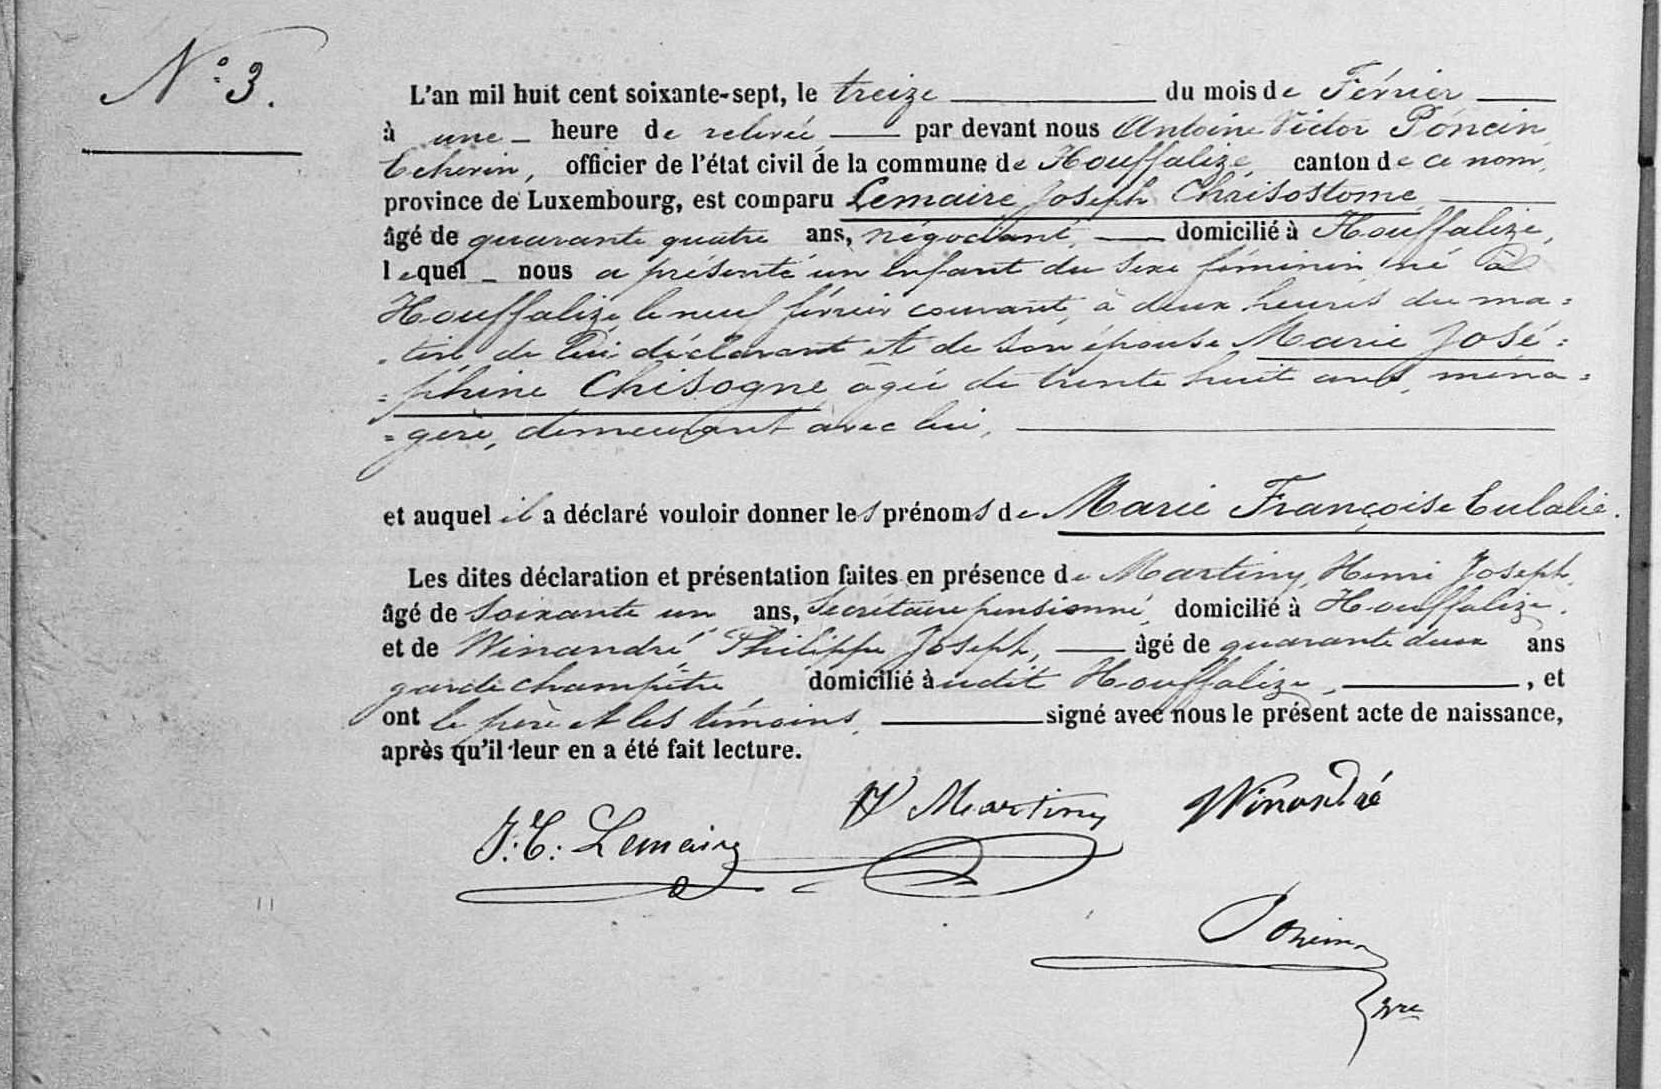 N° 3.
L'an mil huit cent soixante-sept, le treize du mois de Février
à une heure de relevée par devant nous Antoine Victor Poncin
Echevin, officier de l'état civil de la commune de Houffalize, canton de ce nom,
province de Luxembourg, est comparu Lemaire Joseph Chrisostome,
âgé de quarante quatre ans, négociant, domicilié à Houffalize,
lequel nous a présenté un enfant du sexe féminin né à
Houffalize le neuf février courant, à deux heures du ma=
=tin, de lui déclarant et de son épouse Marie José=
=phine Chisogne, âgée de trente huit ans, ména=
=gère, demeurant avec lui,
et auquel il a déclaré vouloir donner les prénoms de Marie Françoise Eulalie.
Les dites déclaration et présentation faites en présence de Martiny, Henri Joseph,
âgé de soixante un ans, secrétaire pensionné, domicilié à Houffalize,
et de Winandré Philippe Joseph, âgé de quarante deux ans
garde champêtre, domicilié àudit Houffalize, , et
ont le père et les témoins, signé avec nous le présent acte de naissance,
après qu'il leur en a été fait lecture.
J: C: Lemaire H Martiny Winandré
Poncin